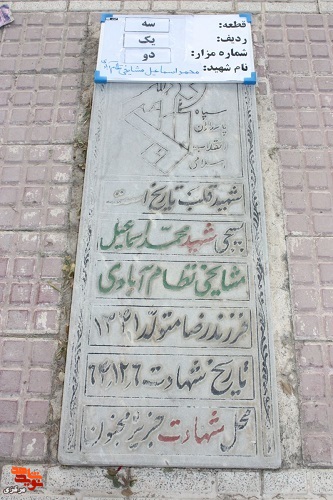 قطعه: سه
ردیف: یک
شماره مزار: دو
نام شهید: محمد اسماعیل مشایخی
سپاه
پاسداران
انقلاب
اسلامی
شهید قلب تاریخ است
بسیجی شهید محمد اسماعیل
مشایخی نظام آبادی
فرزند رضا متولد ۱۳۴۱
تاریخ شهادت ۶۴٫۱۲٫۶
محل شهادت جزیره مجنون